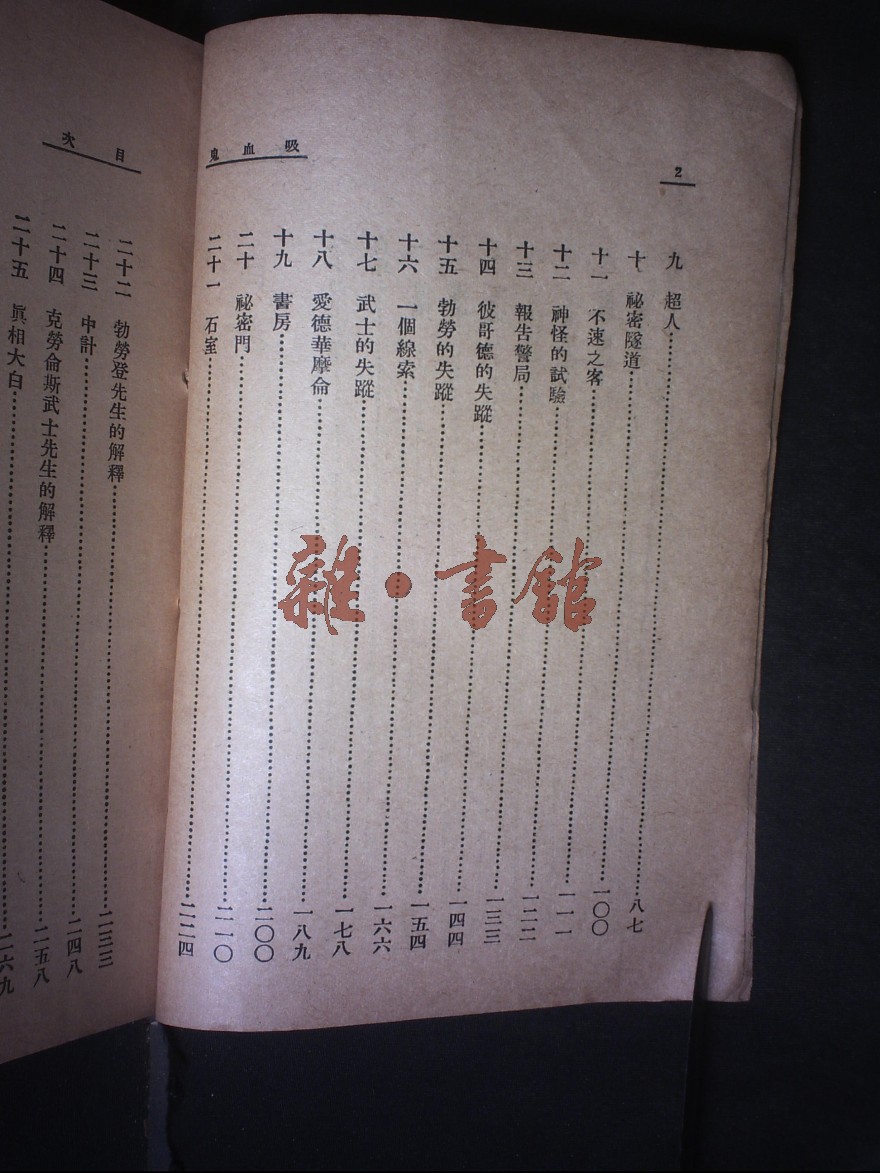 2
吸血鬼
九 超人……八七
十 祕密隧道……一〇〇
十一 不速之客……一一一
十二 神怪的試驗……一二二
十三 報告警局……一三三
十四 彼哥德的失蹤……一四四
十五 勃勞的失蹤……一五四
十六 一個線索……一六六
十七 武士的失蹤……一七八
十八 愛德華摩倫……一八九
十九 書房……二〇〇
二十 祕密門……二一〇
二十一 石室……二二四
目次
二十二 勃勞登先生的解釋……二三三
二十三 中計……二四八
二十四 克勞倫斯武士先生的解釋……二五八
二十五 眞相大白……二六九
雜·書館